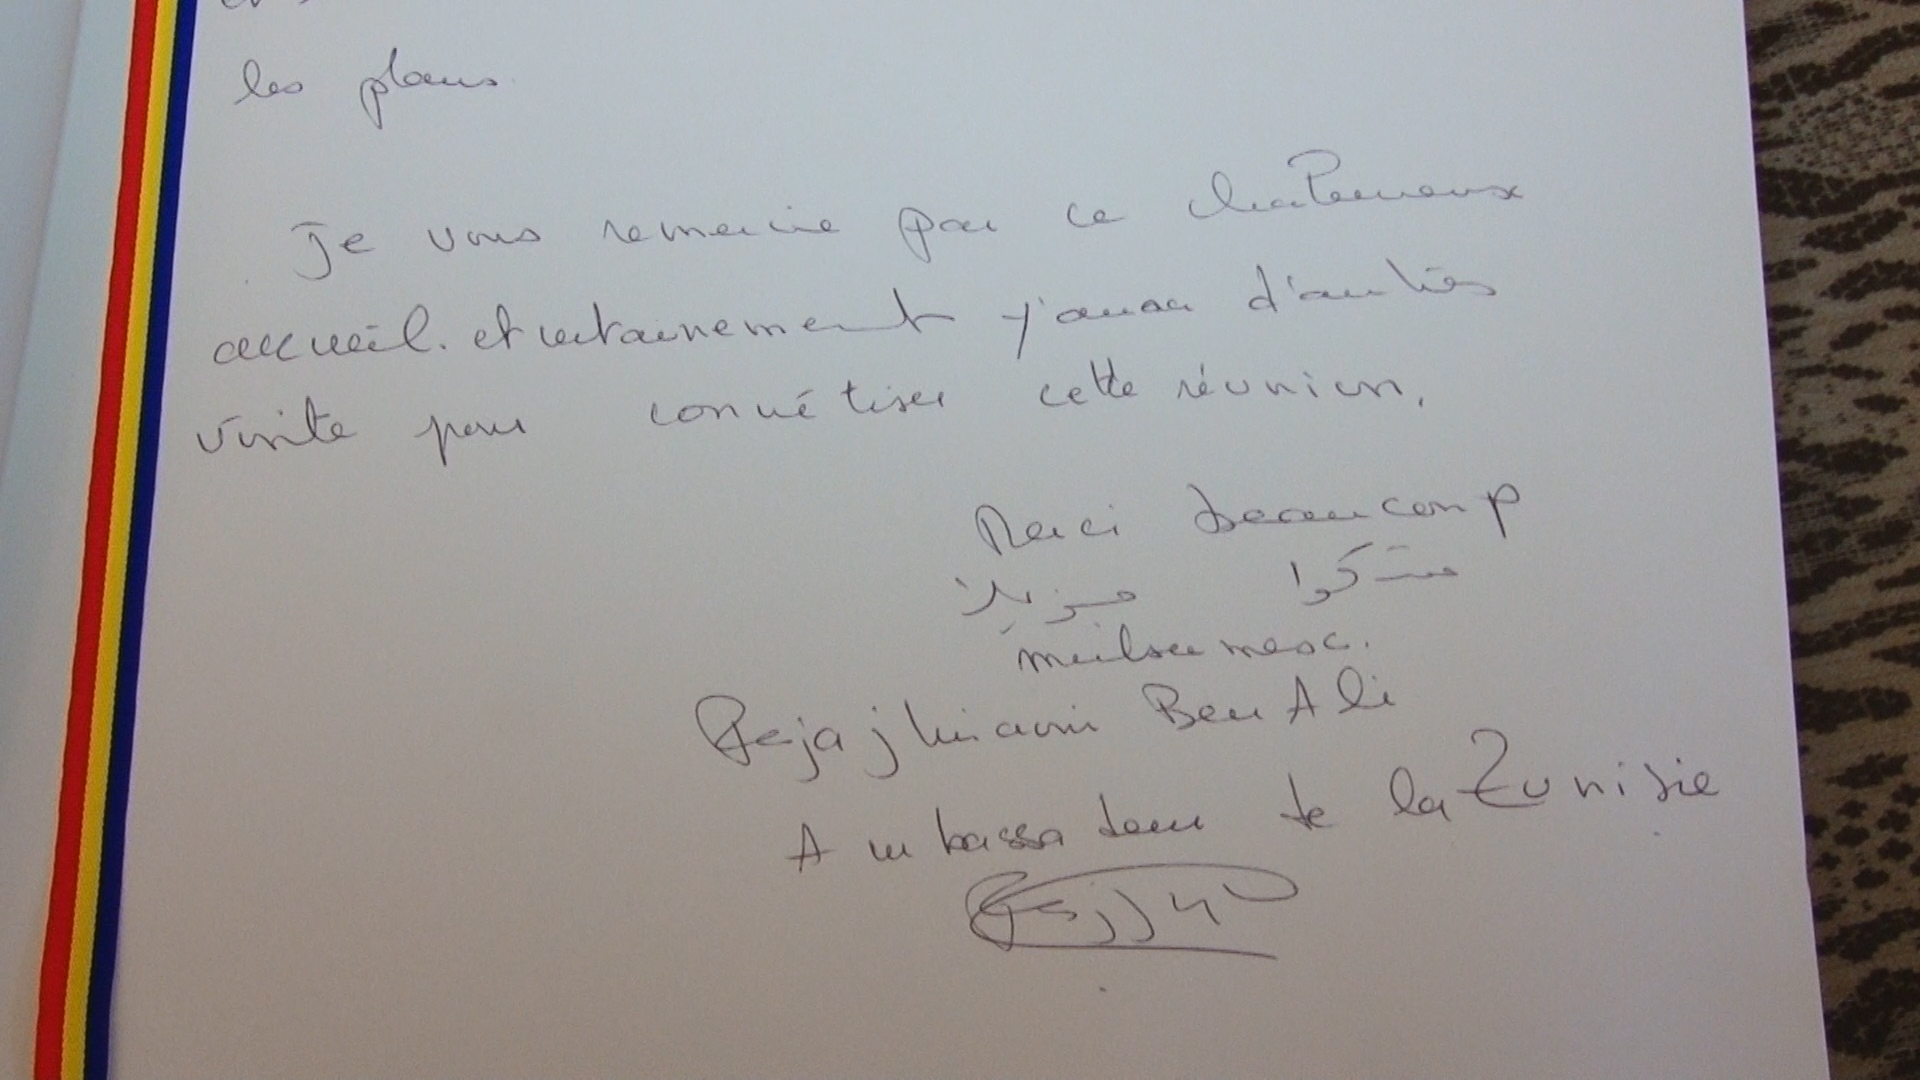 les plans
Je vous remercie par ce chaleureux
accueil. et certainement j'aurai d'autres
visite pour concrétiser cette réunion.
Merci beaucoup
شكرا جزيلا
multsumesc.
Ben Ali
Ambassadeur de la Tunisie